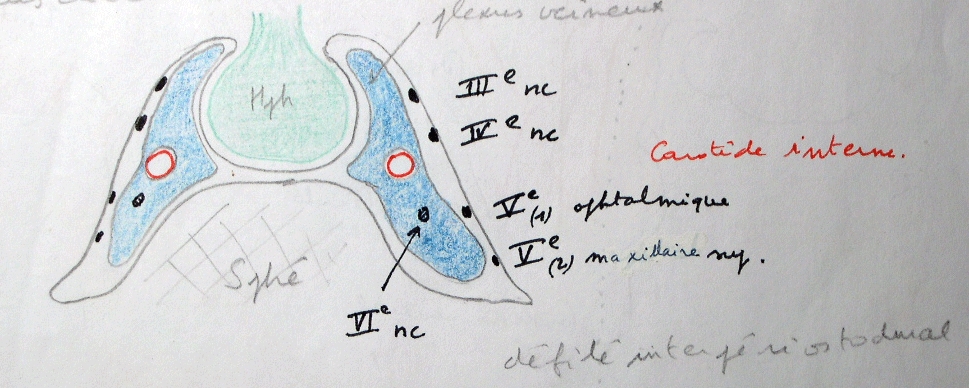 plexus veineux
Hph
III e nc
IV e nc
Carotide interne.
V e (1) ophtalmique
V e (2) maxillaire sup.
Sphé
VI e nc
défilé interpériostodural